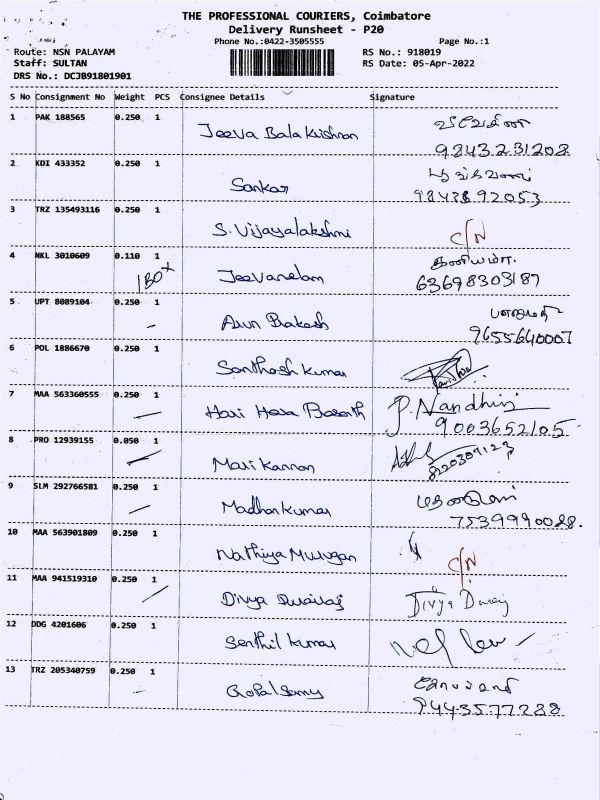 THE PROFESSIONAL COURIERS, Coimbatore
Delivery Runsheet - P20
Phone No.:0422-3505555 Page No.:1
Route: NSN PALAYAM RS No.: 918019
Staff: SULTAN RS Date: 05-Apr-2022
DRS No.: DCJB91801901
S No Consignment No Weight PCS Consignee Details Signature
1 PAK 188565 0.250 1
Jeeva Bala Krishnan
9843231208
2 KDI 433352 0.250 1
Sankar
9843892053
3 TRZ 135493116 0.250 1
S. Vijayalakshmi C/N
4 NKL 3010609 0.110 1
Jeevanelam
63698303187
5 UPT 8089104 0.250 1
Arun Prakash
9655640007
6 POL 1886670 0.250 1
Santhosh Kumar
7 MAA 563360555 0.250 1
Hari Hara Prasanth P. Nandhini
9003652105
8 PRO 12939155 0.050 1
Mari Kannan
8220309123
9 SLM 292766581 0.250 1
Madhan Kumar
7539990028.
10 MAA 563901809 0.250 1
Nathiya Murugan C/N
11 MAA 941519310 0.250 1
Divya Duraraj Divya Duraj
12 DDG 4201606 0.250 1
Senthil Kumar
13 TRZ 205340759 0.250 1
Gopal Samy
9443577288